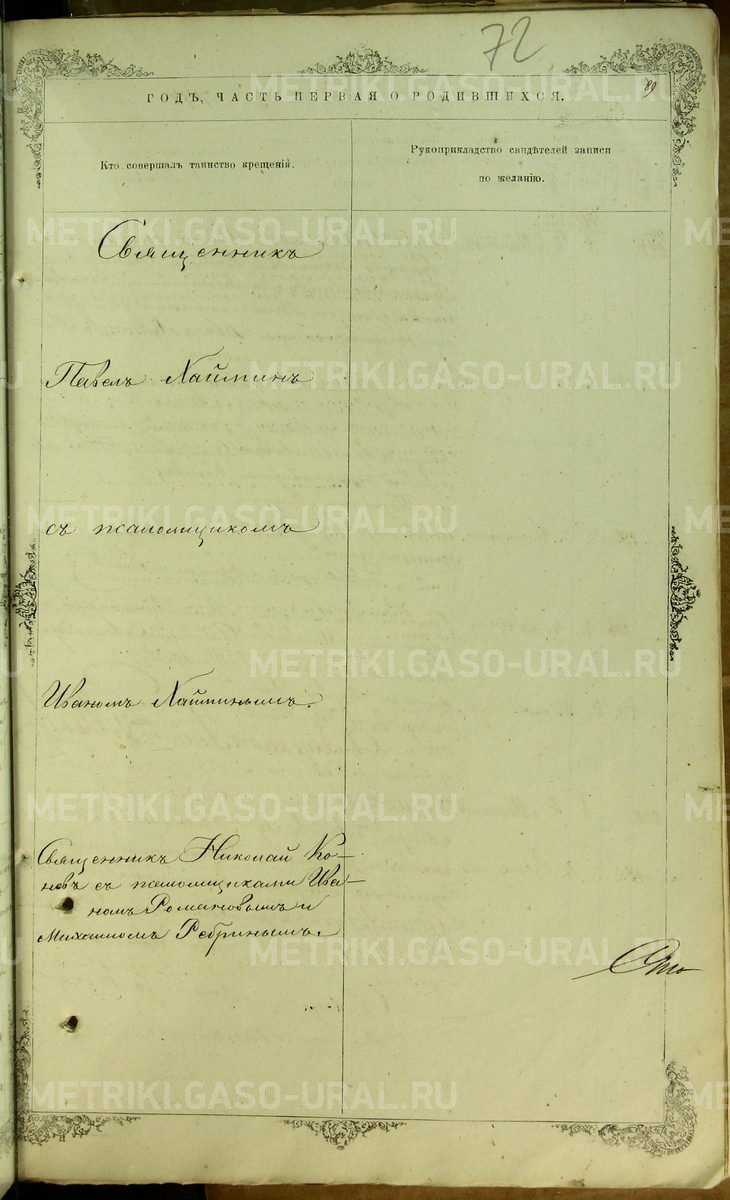 72
89
ГОДЪ, ЧАСТЬ ПЕРВАЯ О РОДИВШИХСЯ.
Кто совершалъ таинство крещенія.
Рукоприкладство свидѣтелей записи
по желанію.
Священникъ
Павелъ
съ псаломщикомъ
Иваномъ
Священникъ Николай Ко-
новъ съ псаломщиками Ива-
номъ Романовымъ и
Михаиломъ Ребринымъ.
METRIKI.GASO-URAL.RU